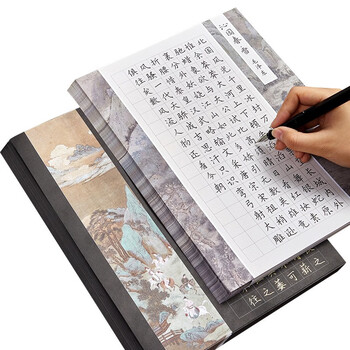 沁园春雪
毛泽东
北国风光千里冰封 内外
惟余莽莽大河上下 银蛇原
驰蜡象欲与天公试比高须晴日看红装素
裹分外妖娆江山如此多娇引无数英雄竞
折腰惜秦皇汉武略输文采唐宗宋祖稍逊
风骚一代天骄成吉思汗只识弯弓射大雕
俱往矣数风流人物还看今朝